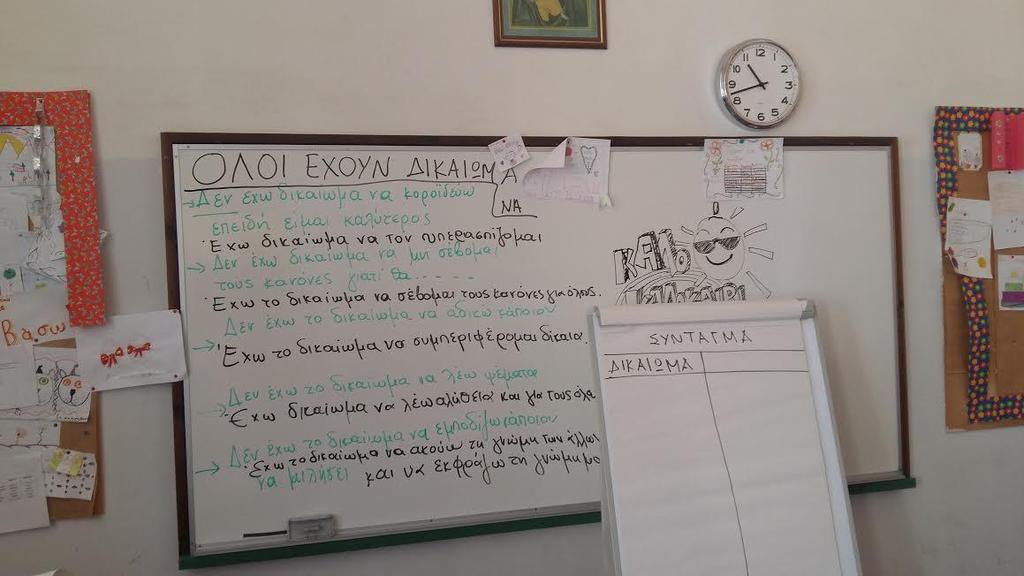 ΟΛΟΙ ΕΧΟΥΝ ΔΙΚΑΙΩΜΑ
ΝΑ
Δεν έχω δικαίωμα να κοροϊδεύω
επειδή είμαι καλύτερος
Έχω δικαίωμα να τον υπερασπίζομαι
Δεν έχω δικαίωμα να μη σέβομαι
τους κανόνες γιατί θα
Έχω το δικαίωμα να σέβομαι τους κανόνες για όλους.
Δεν έχω το δικαίωμα να αδικώ κάποιον
Έχω το δικαίωμα να συμπεριφέρομαι δίκαια.
Δεν έχω το δικαίωμα να λέω ψέματα
Έχω δικαίωμα να λέω αλήθεια και για τους άλλ
Δεν έχω το δικαίωμα να εμποδίζω κάποιον
Έχω το δικαίωμα να ακούω τη γνώμη των άλλων
να μιλήσει και να εκφράζω τη γνώμη μο
ΚΑΛΟ
ΚΑΛΟΚΑΙΡΙ
ΣΥΝΤΑΓΜΑ
ΔΙΚΑΙΩΜΑ
Βάσω
12
1
2
3
4
5
6
7
8
9
10
11